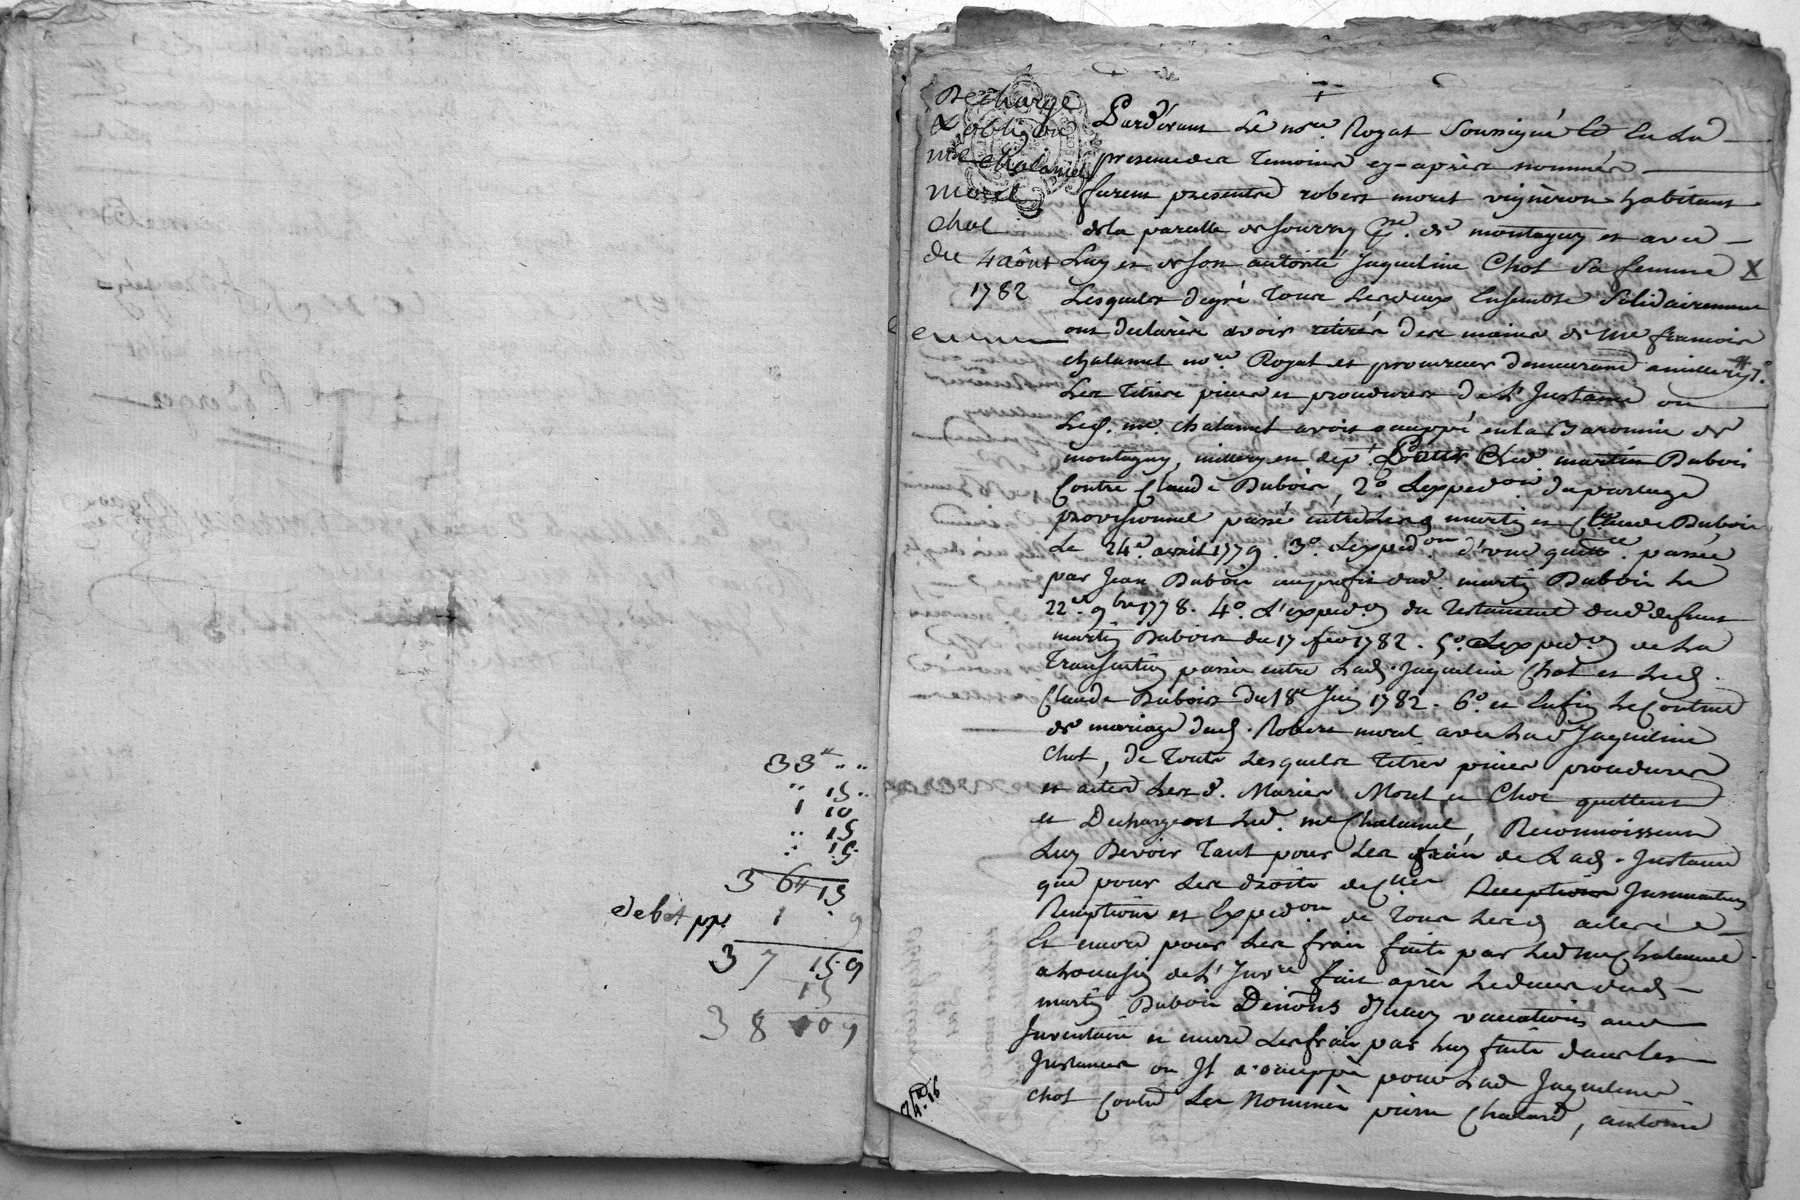 33ᵗᵗ " "
" 15 "
1 10
" 15
" 15
36ᵗᵗ 15
debet pp. 1 . 9
37 15 9
15
38 10 9
Décharge
& obligon
me chalamel
morel
chol
du 4 août
1782
Pardevant Le nore. Royal Soussigné Et En La
presence des Temoins cy-après nommés
furent presents robert morel vigneron habitant
de la parcelle de sourzy psse. de montagny et avec
Luy et de son autorité Jaqueline Chol Sa femme X
Lesquels de gré Tous Les deux Ensemble Solidairement
ont declarés avoir retirés des mains de me françois
chalamel nore Royal et procureur demeurant a millery 1°.
Les Titres pieces et procedures de L'Instance ou
Led. me. chalamel avoit occuppé en la Baronnie de
montagny, millery en dep. pour Led. martin Dubois
Contre Claude Dubois, 2°. L'expedon du partage
provisionnel passé entre Lesd martin et Claude Dubois
Le 24e. avril 1779. 3°. L'expedon d'une quittce. passée
par Jean Dubois au profit dud. martin Dubois Le
22e. 9bre 1778. 4°. L'expedon du Testament dud defunt
martin Dubois du 17 fév 1782. 5°. L'expedon de La
Transaction passée entre Lad. Jaqueline Chol et Led.
Claude Dubois du 18e Juin 1782. 6°. et Enfin Le Contrat
de mariage dud. Robert morel avec Lad Jaqueline
Chol, de Toute Lesquels Titres pieces procedures
et actes Lesd. Mariés Morel et Chol quittent
et Dechargent Led. me Chalamel, Reconnoissent
Luy Devoir Tant pour Les frais de Lad. Instance
que pour Les droits de
Reception et Expedon de Tous Lesd actes
Et encore pour Les frais faits par Led me Chalamel
a L'occasion de L'Invre fait après Le deces dud.
martin Dubois vacations aud
Inventaire et encore Les frais par Luy faits dans Les
Instances ou Il a occuppé pour Lad Jaqueline
Chol Contre Les Nommés pierre Chatard, antoine